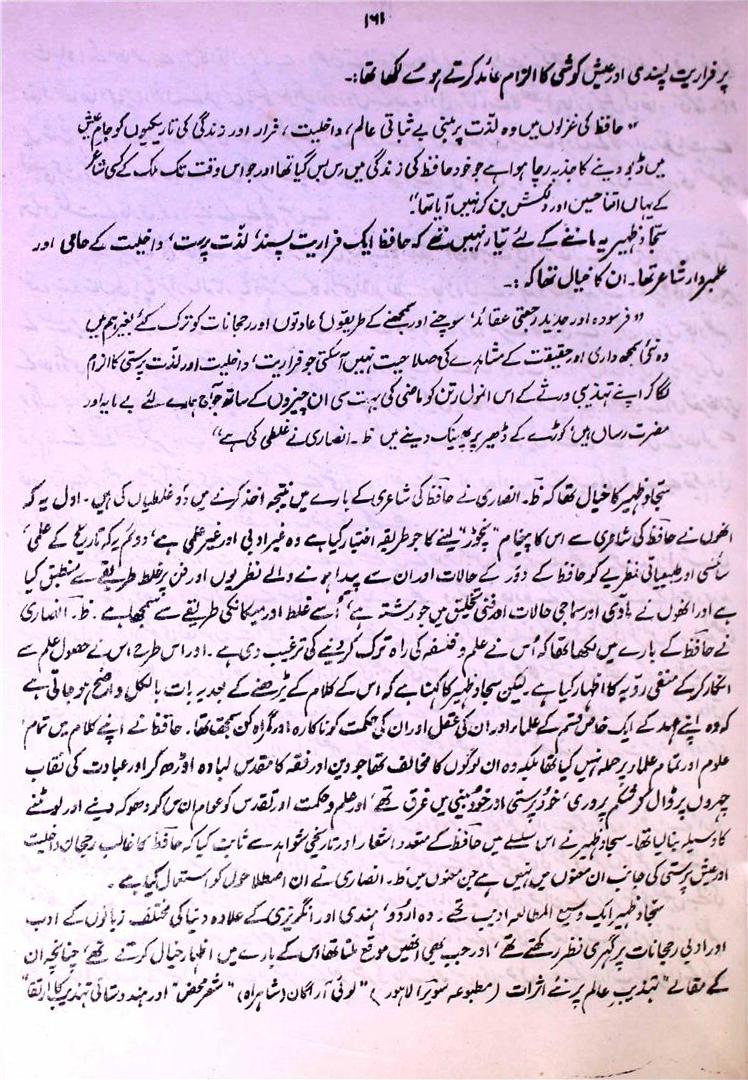 ۱۶۱
پر فراریت پسندی اور عیش کوشی کا الزام عائد کرتے ہوئے لکھا تھا:۔
"حافظ کی غزلوں میں وہ لذت پر مبنی بے ثباتی عالم، داخلیت، فرار اور زندگی کی تاریکیوں کو جامِ عیش
میں ڈبو دینے کا جذبہ رچا ہوا ہے جو خود حافظ کی زندگی میں رس بس گیا تھا اور جو اس وقت تک ملک کے کسی شاعر
کے یہاں اتنا حسین اور دلکش بن کر نہیں آیا تھا۔"
سجاد ظہیر یہ ماننے کے لئے تیار نہیں تھے کہ حافظ ایک فراریت پسند، لذت پرست، داخلیت کے حامی اور
علمبردار شاعر تھا۔ ان کا خیال تھا کہ:۔
"فرسودہ اور جدید رجعتی عقائد، سوچنے اور سمجھنے کے طریقوں، عادتوں اور رجحانات کو ترک کئے بغیر ہم میں
وہ نئی سمجھ داری اور حقیقت کے مشاہدے کی صلاحیت نہیں آسکتی جو فراریت، داخلیت اور لذت پرستی کا الزام
لگا کر اپنے تہذیبی ورثے کے اس انمول رتن کو ماضی کی بہت سی ان چیزوں کے ساتھ جو آج ہمارے لئے بے مایہ اور
مضرت رساں ہیں، کوڑے کے ڈھیر پر پھینک دینے میں ظ۔ انصاری نے غلطی کی ہے"
سجاد ظہیر کا خیال تھا کہ ظ۔ انصاری نے حافظ کی شاعری کے بارے میں نتیجہ اخذ کرنے میں دو غلطیاں کی ہیں۔ اول یہ کہ
انھوں نے حافظ کی شاعری سے اس کا پیغام "نچوڑ" لینے کا جو طریقہ اختیار کیا ہے وہ غیر ادبی اور غیر علمی ہے، دوئم یہ کہ تاریخ کے علمی،
سائنسی اور طبیعاتی نظریے کو حافظ کے دور کے حالات اور ان سے پیدا ہونے والے نظریوں اور فن پر غلط طریقے سے منطبق کیا
ہے اور انھوں نے مادی اور سماجی حالات اور فنی تخلیق میں جو رشتہ ہے، اُسے غلط اور میکانکی طریقے سے سمجھا ہے۔ ظ۔ انصاری
نے حافظ کے بارے میں لکھا تھا کہ اُس نے علم و فلسفہ کی راہ ترک کر دینے کی ترغیب دی ہے۔ اور اس طرح اس نے حصول علم سے
انکار کر کے منفی رویہ کا اظہار کیا ہے۔ لیکن سجاد ظہیر کا کہنا ہے کہ اس کے کلام کے پڑھنے کے بعد یہ بات بالکل واضح ہو جاتی ہے
کہ وہ اپنے عہد کے ایک خاص قسم کے علماء اور ان کی عقل اور ان کی حکمت کو ناکارہ اور گمراہ کن سمجھتا تھا۔ حافظ نے اپنے کلام میں تمام
علوم اور تمام علماء پر حملہ نہیں کیا تھا بلکہ وہ ان لوگوں کا مخالف تھا جو دین اور فقہ کا مقدس لبادہ اوڑھ کر اور عبادت کی نقاب
چہروں پر ڈال کر شکم پروری، خود پرستی اور خود بینی میں غرق تھے، اور علم و حکمت اور تقدس کو عوام الناس کو دھوکہ دینے اور لوٹنے
کا وسیلہ بنا لیا تھا۔ سجاد ظہیر نے اس سلسلے میں حافظ کے متعدد اشعار اور تاریخی شواہد سے ثابت کیا کہ حافظ کا غالب رجحان داخلیت
اور عیش پرستی کی جانب ان معنوں میں نہیں ہے جن معنوں میں ظ۔ انصاری نے ان اصطلاحوں کو استعمال کیا ہے۔
سجاد ظہیر ایک وسیع المطالعہ ادیب تھے۔ وہ اردو، ہندی اور انگریزی کے علاوہ دنیا کی مختلف زبانوں کے ادب
اور ادبی رجحانات پر گہری نظر رکھتے تھے، اور جب بھی انھیں موقع ملتا تھا اس کے بارے میں اظہار خیال کرتے تھے، چنانچہ ان
کے مقالے "تہذیب عالم پر نئے اثرات (مطبوعہ سویرا لاہور)" "لوئی آراگان (شاہراہ)" "شعر محض" اور ہندوستانی تہذیب کا ارتقا"